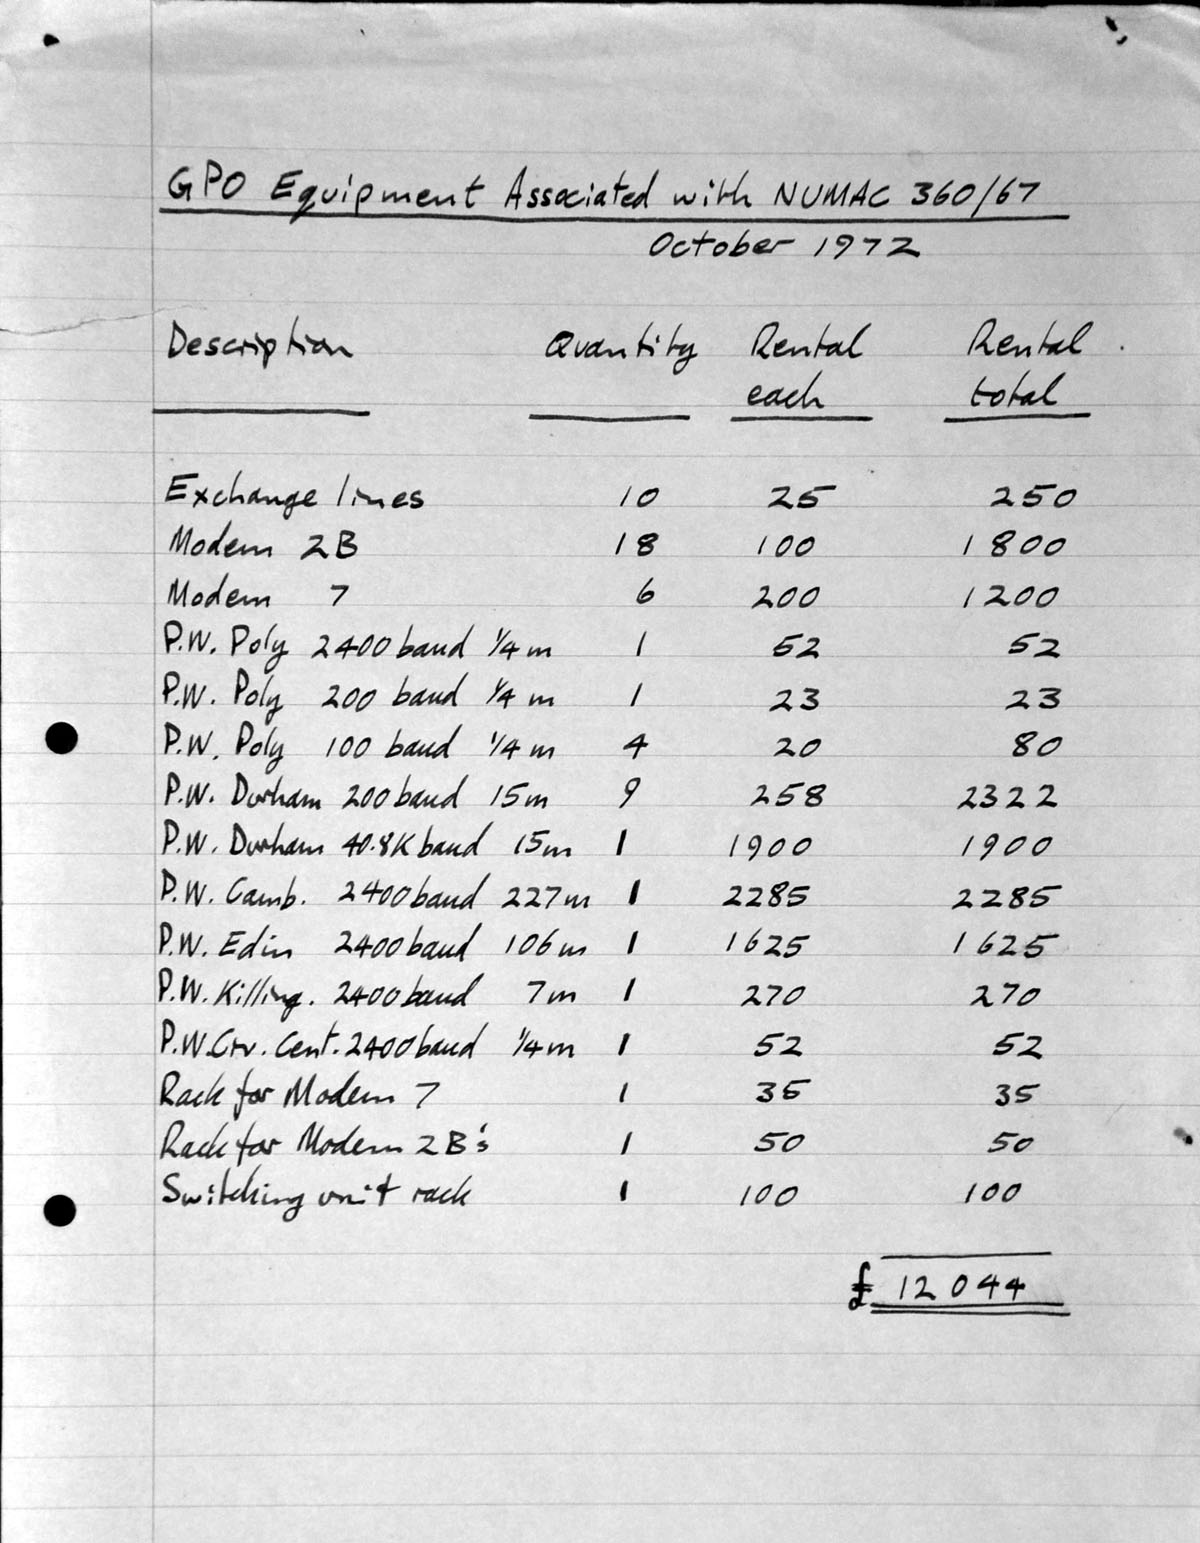 GPO Equipment Associated with NUMAC 360/67
October 1972
Description Quantity Rental each Rental total
Exchange lines 10 25 250
Modem 2B 18 100 1800
Modem 7 6 200 1200
P.W. Poly 2400 baud 1/4 m 1 52 52
P.W. Poly 200 baud 1/4 m 1 23 23
P.W. Poly 100 baud 1/4 m 4 20 80
P.W. Durham 200 baud 15m 9 258 2322
P.W. Durham 40.8K baud 15m 1 1900 1900
P.W. Camb. 2400 baud 227m 1 2285 2285
P.W. Edin 2400 baud 106m 1 1625 1625
P.W. Killing. 2400 baud 7m 1 270 270
P.W. Crv. Cent. 2400 baud 1/4 m 1 52 52
Rack for Modem 7 1 35 35
Rack for Modem 2B's 1 50 50
Switching unit rack 1 100 100
£ 12044